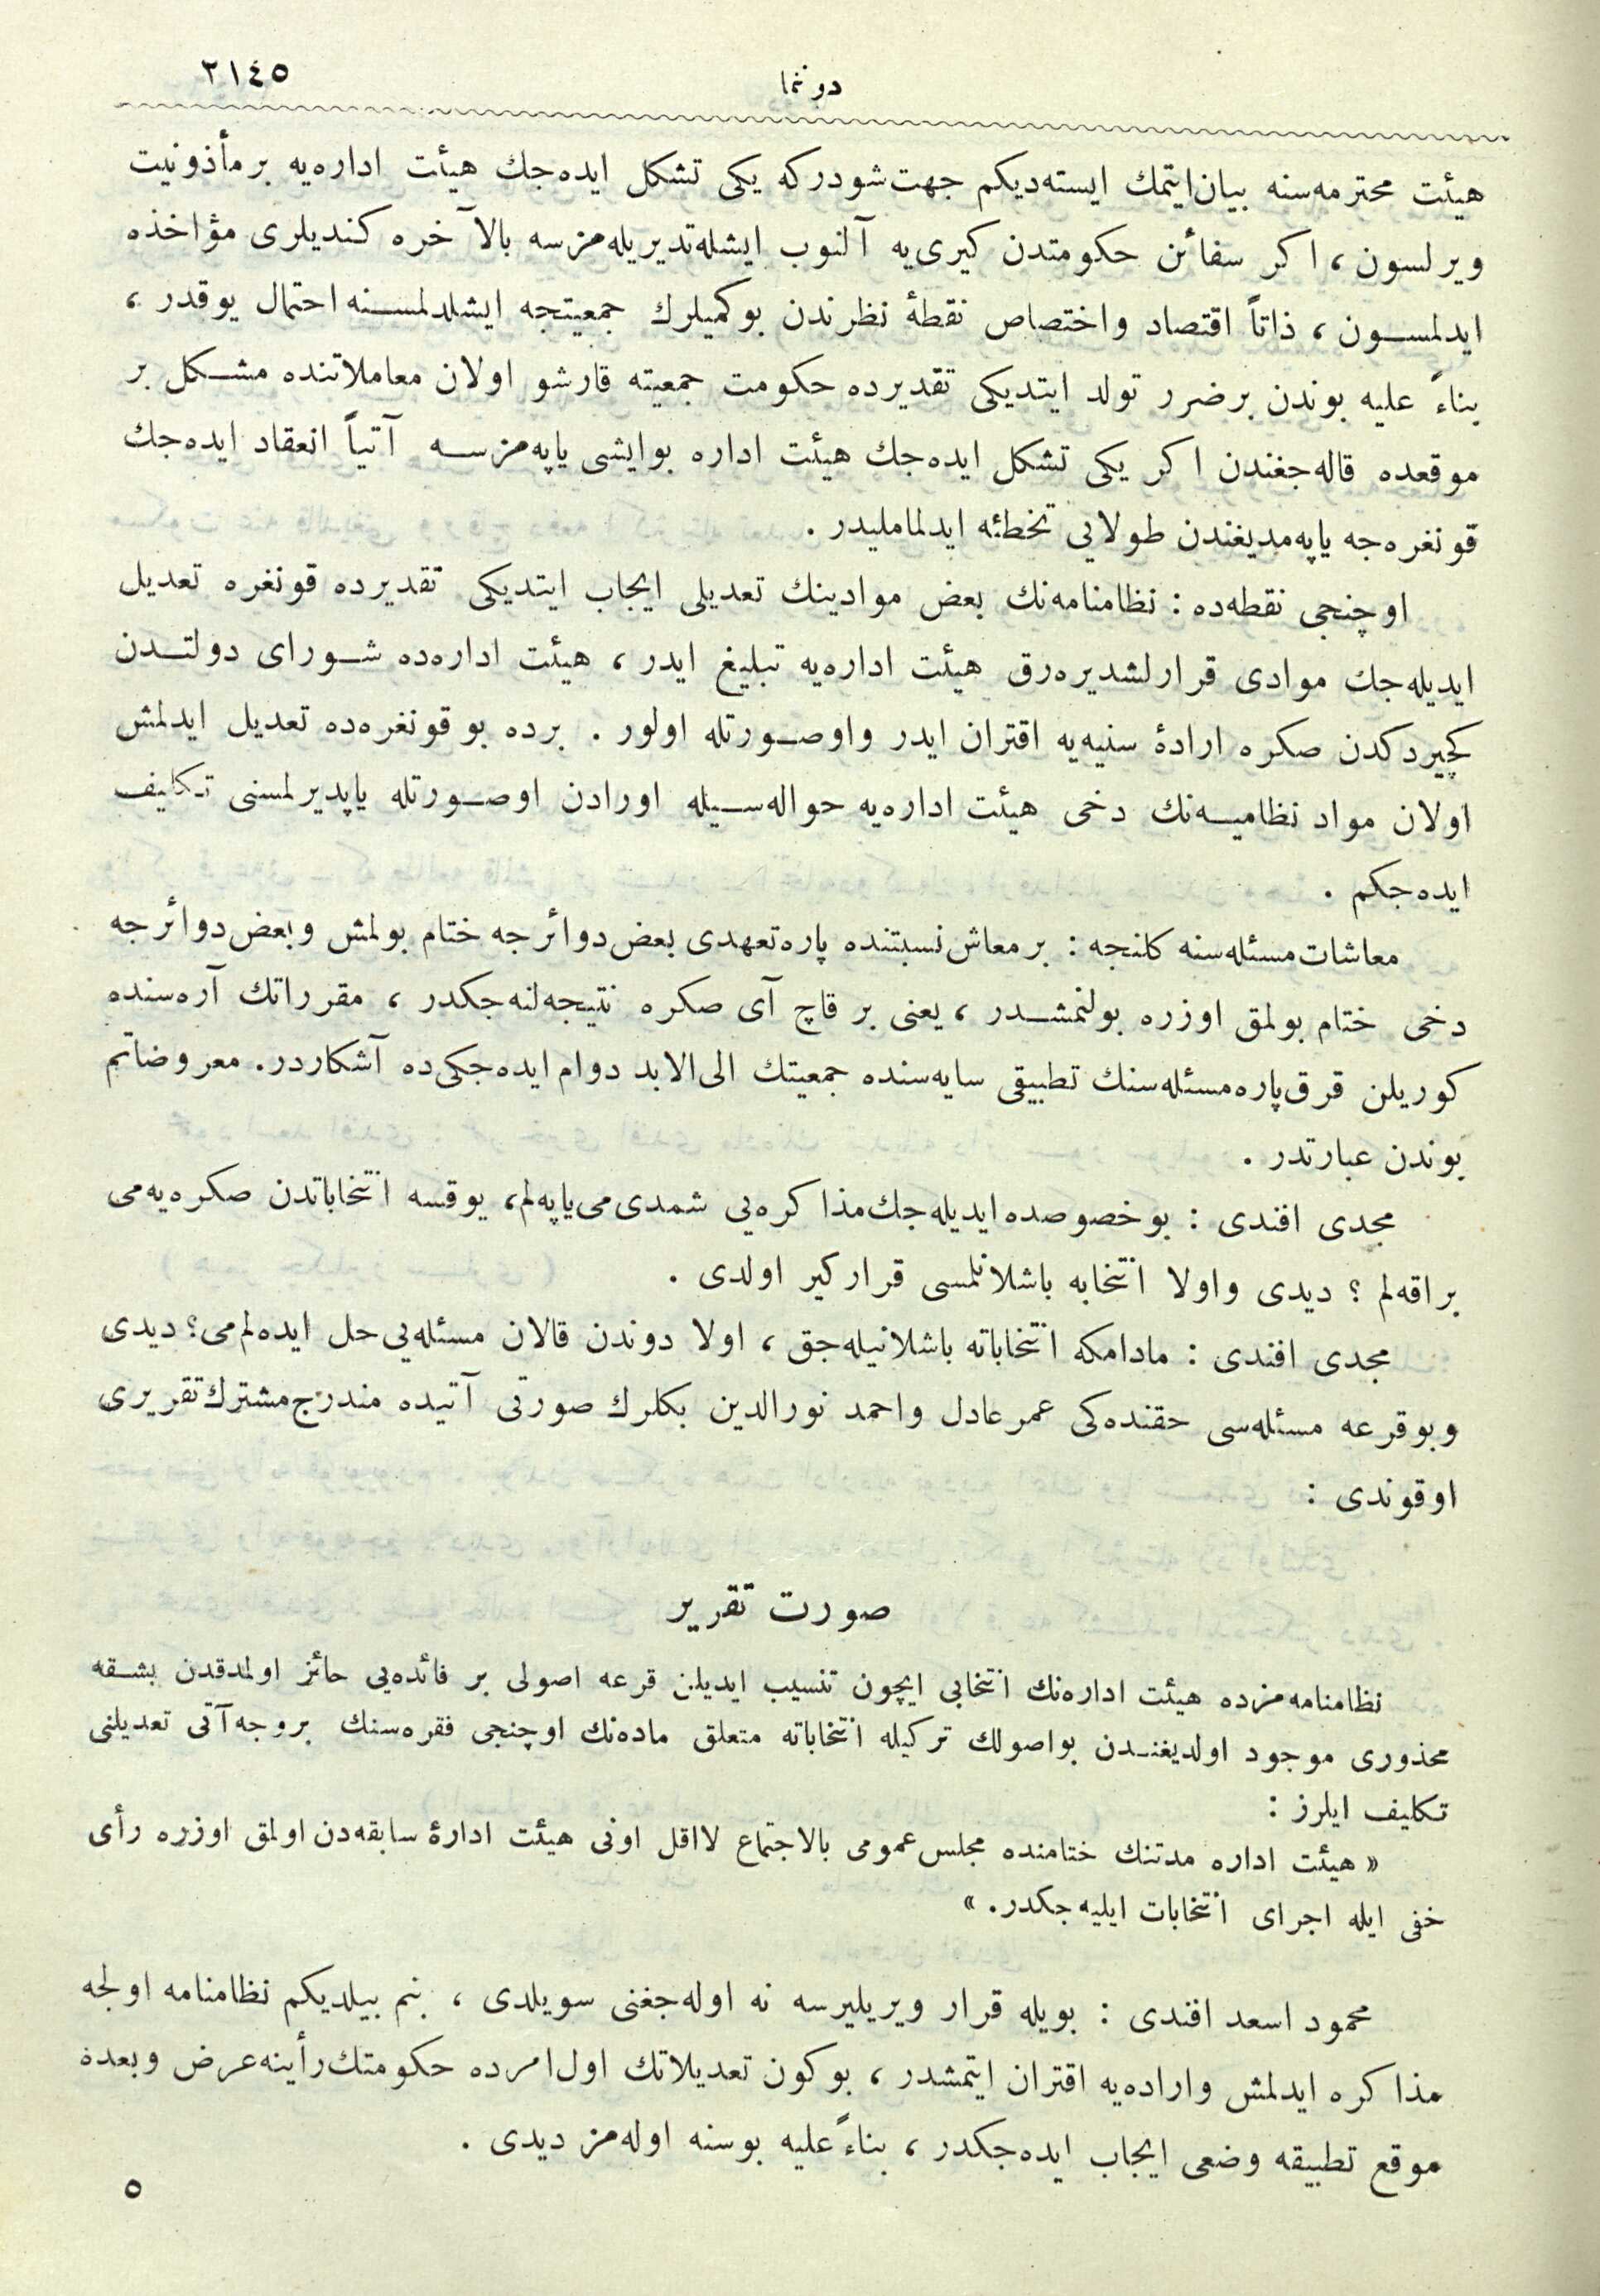 دوننما
٢١٤٥
هیئت محترمه‌سنه بیان ایتمك ایسته‌دیكم جهت شودركه یكی تشكل ایده‌جك هیئت اداره‌یه بر مأذونیت
ویرلسون ، اكر سفائن حكومتدن كیری‌یه آلنوب ایشله‌تدیریله‌مزسه بالآخره كندیلری مؤاخذه
ایدلمسون ، ذاتاً اقتصاد واختصاص نقطهٔ نظرندن بوكمیلرك جمعیتجه ایشلدلمسنه احتمال یوقدر ،
بناءً علیه بوندن برضرر تولد ایتدیكی تقدیرده حكومت جمعیته قارشو اولان معاملاتنده مشكل بر
موقعده قاله‌جغندن اكر یكی تشكل ایده‌جك هیئت اداره بوایشی یاپه‌مزسه آتیاً انعقاد ایده‌جك
قونغره‌جه یاپه‌مدیغندن طولایی تخطئه ایدلمامليدر .
اوچنجی نقطه‌ده : نظامنامه‌نك بعض موادینك تعدیلی ایجاب ایتدیكی تقدیرده قونغره تعدیل
ایدیله‌جك موادی قرارلشدیره‌رق هیئت اداره‌یه تبلیغ ایدر ، هیئت اداره‌ده شورای دولتدن
كچیردكدن صكره ارادهٔ سنیه‌یه اقتران ایدر واوصورتله اولور . برده بو قونغره‌ده تعدیل ایدلمش
اولان مواد نظامیه‌نك دخی هیئت اداره‌یه حواله‌سیله اورادن اوصورتله یاپدیرلمسنی تكلیف
ایده‌جكم .
معاشات مسئله‌سنه كلنجه : بر معاش نسبتنده پاره تعهدی بعض دوائرجه ختام بولمش وبعض دوائرجه
دخی ختام بولمق اوزره بولنمشدر ، یعنی بر قاچ آی صكره نتیجه‌لنه‌جكدر ، مقرراتك آره‌سنده
كوریلن قرق پاره مسئله‌سنك تطبیقی سایه‌سنده جمعیتك الی‌الابد دوام ایده‌جكی‌ده آشكاردر. معروضاتم
بوندن عبارتدر .
مجدی افندی : بوخصوصده ایدیله‌جك مذاكره‌یی شمدی‌می یاپه‌لم، یوقسه انتخاباتدن صكره‌یه‌می
براقه‌لم ؟ دیدی واولا انتخابه باشلانلمسی قراركیر اولدی .
مجدی افندی : مادامكه انتخاباته باشلانیله‌جق ، اولا دوندن قالان مسئله‌یی حل ایده‌لم‌می؟ دیدی
وبوقرعه مسئله‌سی حقنده‌كی عمر عادل واحمد نورالدین بكلرك صورتی آتیده مندرج مشترك تقریری
اوقوندی :
صورت تقریر
نظامنامه‌مزده هیئت اداره‌نك انتخابی ایچون تنسیب ایدیلن قرعه اصولی بر فائده‌یی حائز اولمدقدن بشقه
محذوری موجود اولدیغندن بواصولك تركیله انتخاباته متعلق ماده‌نك اوچنجی فقره‌سنك بروجه‌آتی تعدیلنی
تكلیف ایلرز :
« هیئت اداره مدتنك ختامنده مجلس عمومی بالاجتماع لااقل اونی هیئت ادارهٔ سابقه‌دن اولمق اوزره رأی
خفی ایله اجرای انتخابات ایلیه‌جكدر. »
محمود اسعد افندی : بویله قرار ویریلیرسه نه اوله‌جغنی سویلدی ، بنم بیلدیكم نظامنامه اولجه
مذاكره ایدلمش واراده‌یه اقتران ایتمشدر ، بوكون تعدیلاتك اول‌امرده حكومتك رأینه عرض وبعده
موقع تطبیقه وضعی ایجاب ایده‌جكدر ، بناءً علیه بوسنه اوله‌مز دیدی .
٥